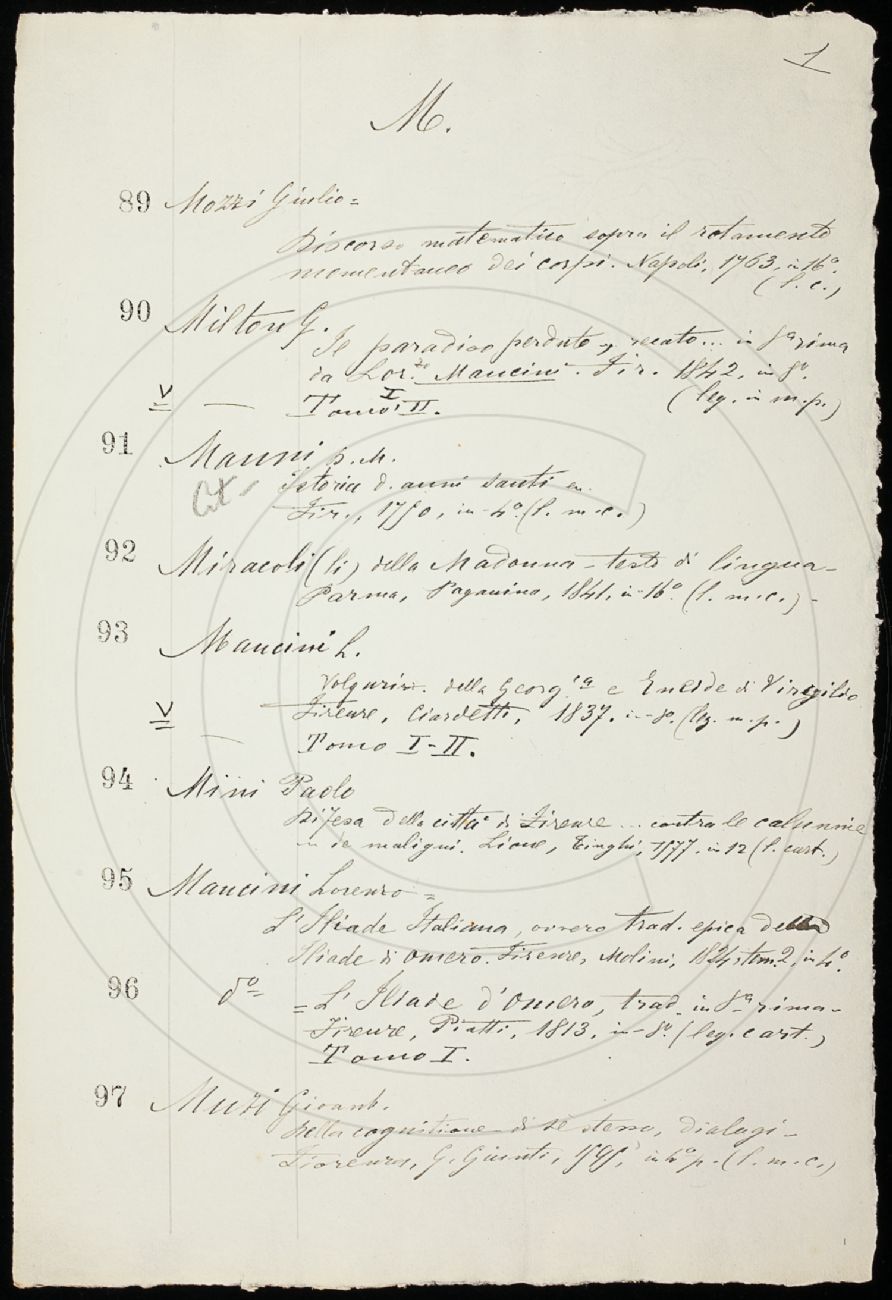 1
M.
89 Mozzi Giulio =
Discorso matematico sopra il rotamento
momentaneo dei corpi. Napoli, 1763, in 16º.
(l. c.)
90 Milton G.
Il paradiso perduto, recato... in 8ª rima
da Lor.zo Mancini. Fir. 1842, in 8º.
V — Tomo I II. (leg. in m. p.)
91 Manni D. M.
Cit Istoria d. anni santi
Fir., 1750, in-4º. (l. m. c.)
92 Miracoli (li) della Madonna - testo di lingua -
Parma, Paganino, 1841, in-16º (l. m. c.) -
93 Mancini L.
Volgariz. della Georg.ca e Eneide di Virgilio
Firenze, Ciardetti, 1837. in-8º. (leg. m. p.)
V — Tomo I - II.
94 Mini Paolo
Difesa della città di Firenze ... contra le calunnie
de maligni. Lione, Tinghi, 1577. in 12 (l. cart.)
95 Mancini Lorenzo =
L'Iliade Italiana, ovvero trad. epica della
Iliade di Omero. Firenze, Molini, 1824, tom. 2, in 4º.
96 dº = L'Iliade d'Omero, trad. in 8ª rima -
Firenze, Piatti, 1813, in-8º. (leg. cart.)
Tomo I.
97 Muzi Giovanb.
Della cognitione di sè stesso, dialogi -
Fiorenza, G. Giunti, 1595, in 4º p. (l. m. c.)